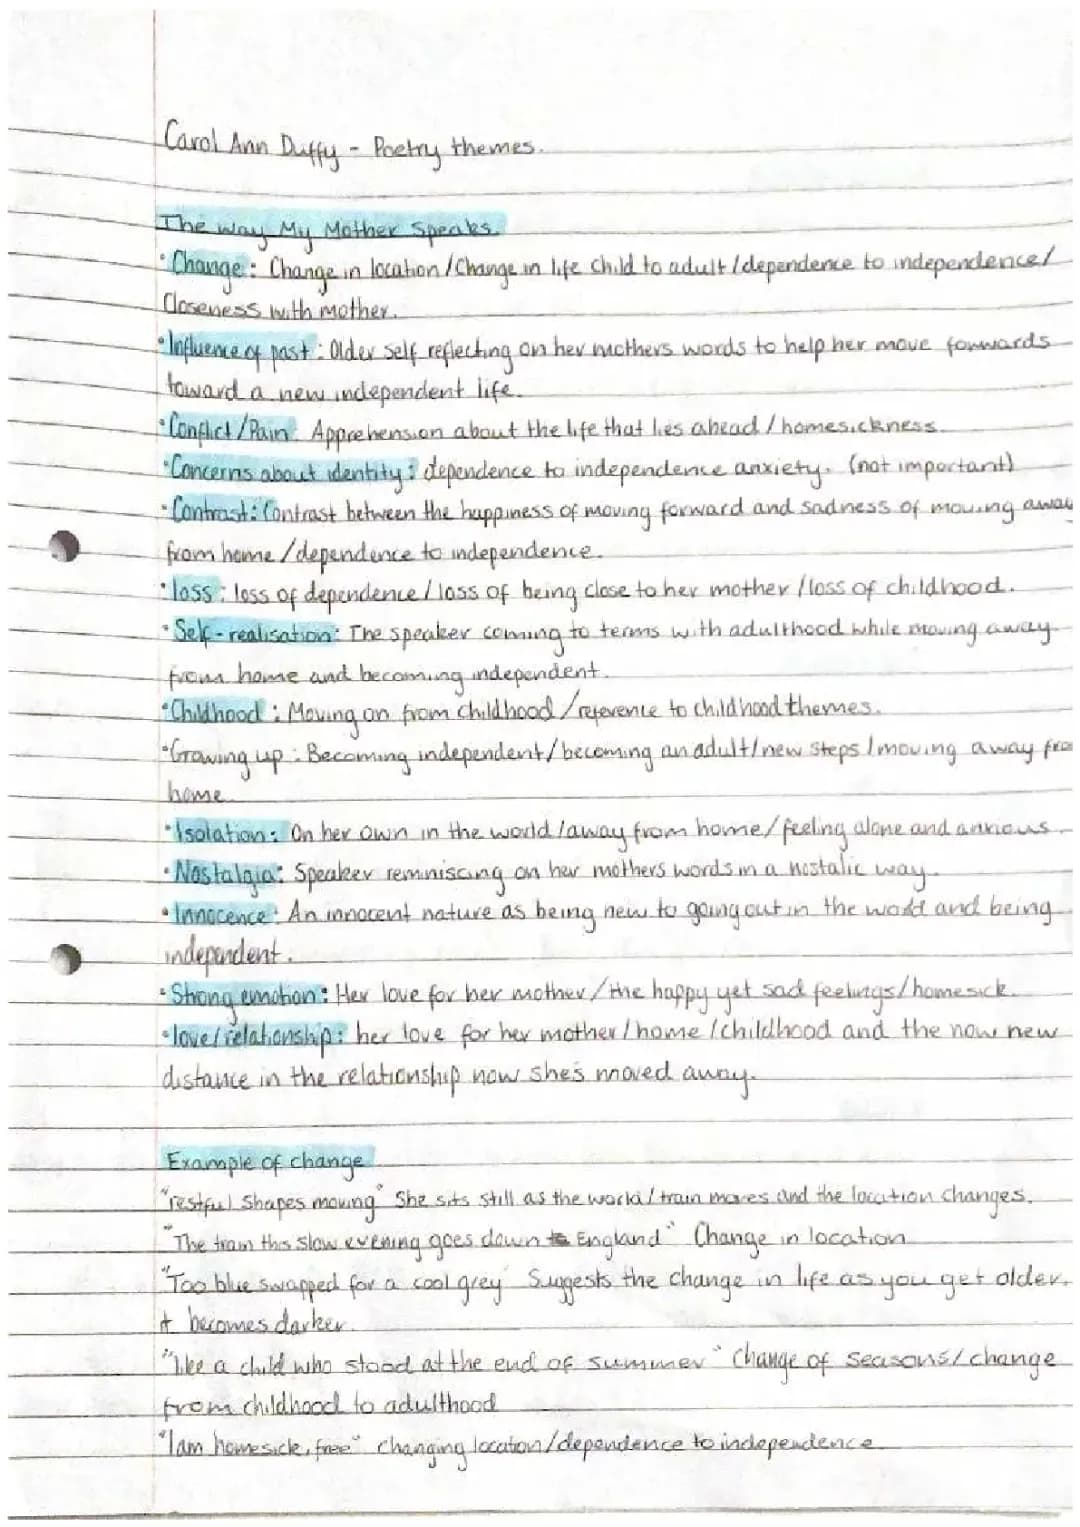 Carol Ann Duffy - Poetry themes.
The way My Mother Speaks.
• Change: Change in location / Change in life child to adult / dependence to independence /
Closeness with mother.
• Influence of past: Older self reflecting on her mothers words to help her move forwards
toward a new independent life.
• Conflict/Pain: Apprehension about the life that lies ahead / homesickness.
• Concerns about identity: dependence to independence anxiety. (not important)
• Contrast: Contrast between the happiness of moving forward and sadness of moving away
from home / dependence to independence.
• loss: loss of dependence / loss of being close to her mother / loss of childhood.
• Self-realisation: The speaker coming to terms with adulthood while moving away
from home and becoming independent.
• Childhood: Moving on from Childhood / reference to childhood themes.
• Growing up: Becoming independent / becoming an adult / new steps / moving away fro
home.
• Isolation: On her own in the world / away from home / feeling alone and anxious.
• Nostalgia: Speaker reminiscing on her mothers words in a nostalic way.
• Innocence: An innocent nature as being new to going out in the world and being
independent.
• Strong emotion: Her love for her mother / the happy yet sad feelings / homesick.
• love/relationship: her love for her mother / home / childhood and the now new
distance in the relationship now she's moved away.
Example of change
"restful Shapes moving" She sits still as the world / train moves and the location changes.
"The train this slow evening goes down England" Change in location
"Too blue swapped for a cool grey" Suggests the change in life as you get older.
it becomes darker.
"like a child who stood at the end of summer" Change of seasons / change
from childhood to adulthood
"I am homesick, free" changing location / dependence to independence